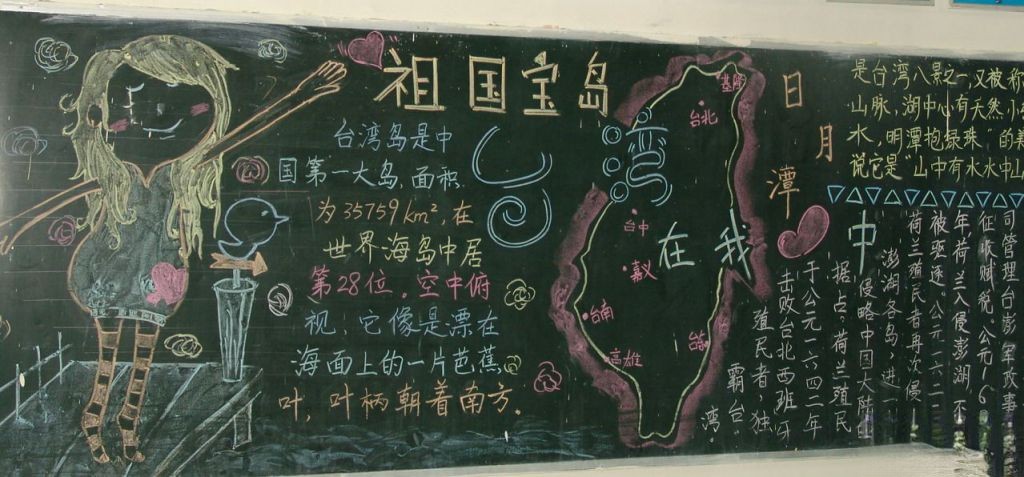 祖国宝岛
台湾岛是中
国第一大岛,面积
为35759km²,在
世界海岛中居
第28位。空中俯
视,它像是漂在
海面上的一片芭蕉
叶,叶柄朝着南方。
台湾在我心中
基隆
台北
台中
嘉义
台南
高雄
日月潭
是台湾八景之一,又被称
山脉,湖中心有天然小
水,明潭抱绿珠"的美
说它是"山中有水水中山
司管理台澎军政事
征收赋税,公元16
年荷兰入侵澎湖,不
被驱逐。公元一六二二
荷兰殖民者再次侵
澎湖各岛,进一
侵略中国大陆
据点。荷兰殖民
于公元一六四二年
击败台北西班牙
殖民者,独
霸台
湾。